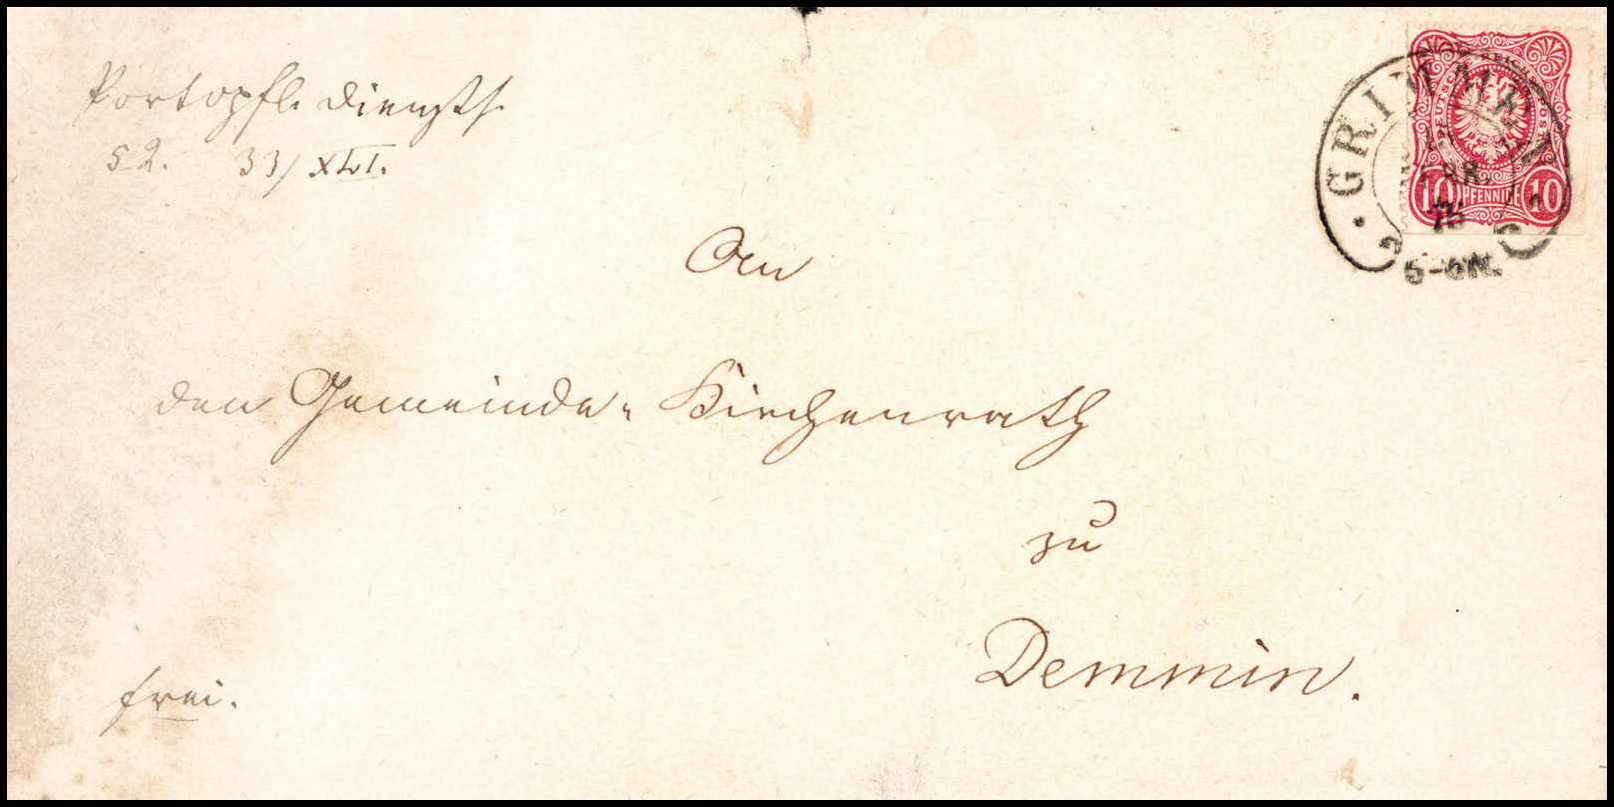 Portopfl. Dienstf.
§ 2. 33/ XVI.
An
den Gemeinde-Kirchenrath
zu
Demmin.
frei.
GRIMMEN
5-6N.
10 PFENNIGE 10